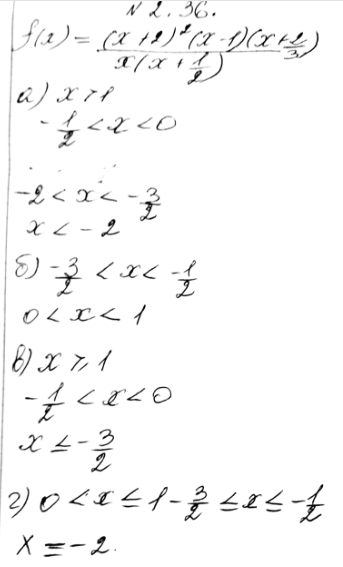 N 2.36.
f(x) = (x+2)²(x-1)(x+2/3) / x(x+1/2)
а) x > 1
-1/2 < x < 0
-2 < x < -3/2
x < -2
б) -3/2 < x < -1/2
0 < x < 1
в) x ⩾ 1
-1/2 < x < 0
x ≤ -3/2
г) 0 < x ≤ 1 -3/2 ≤ x ≤ -1/2
x = -2.